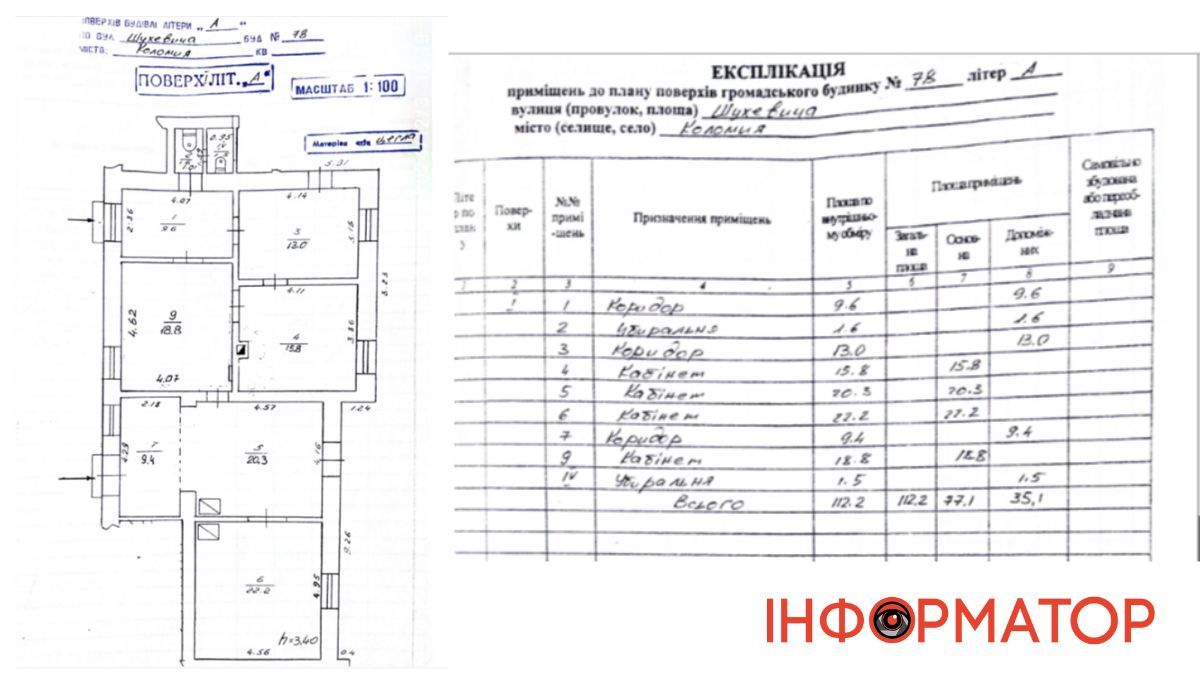 ПОВЕРХІВ БУДІВЛІ ЛІТЕРИ „ А “
ПО ВУЛ. Шухевича БУД № 78
МІСТА: Коломия КВ
ПОВЕРХ І ЛІТ. „А“
МАСШТАБ 1:100
Матеріал стін цегла
0.95
5.31
4.07
4.14
2.36
1
9.6
3
13.0
3.15
5.23
4.11
4.62
9
18.8
4
15.8
3.86
4.07
2.18
4.57
1.24
4.29
7
9.4
5
20.3
4.16
9.26
6
22.2
4.95
h=3.40
4.56
0.4
ЕКСПЛІКАЦІЯ
приміщень до плану поверхів громадського будинку № 78 літер А
вулиця (провулок, площа) Шухевича
місто (селище, село) Коломия
Повер-хи
№№ примі-шень
Призначення приміщень
Площа по внутрішньо-му обміру
Площа приміщень
Загаль-на площа
Основ-на
Допоміж-них
Самовільно збудована або переоб-ладнана площа
1 2 3 4 5 6 7 8 9
1 1 Коридор 9.6 9.6
2 Убиральня 1.6 1.6
3 Коридор 13.0 13.0
4 Кабінет 15.8 15.8
5 Кабінет 20.3 20.3
6 Кабінет 22.2 22.2
7 Коридор 9.4 9.4
9 Кабінет 18.8 18.8
IV Убиральня 1.5 1.5
Всього 112.2 112.2 77.1 35,1
ІНФОРМАТОР